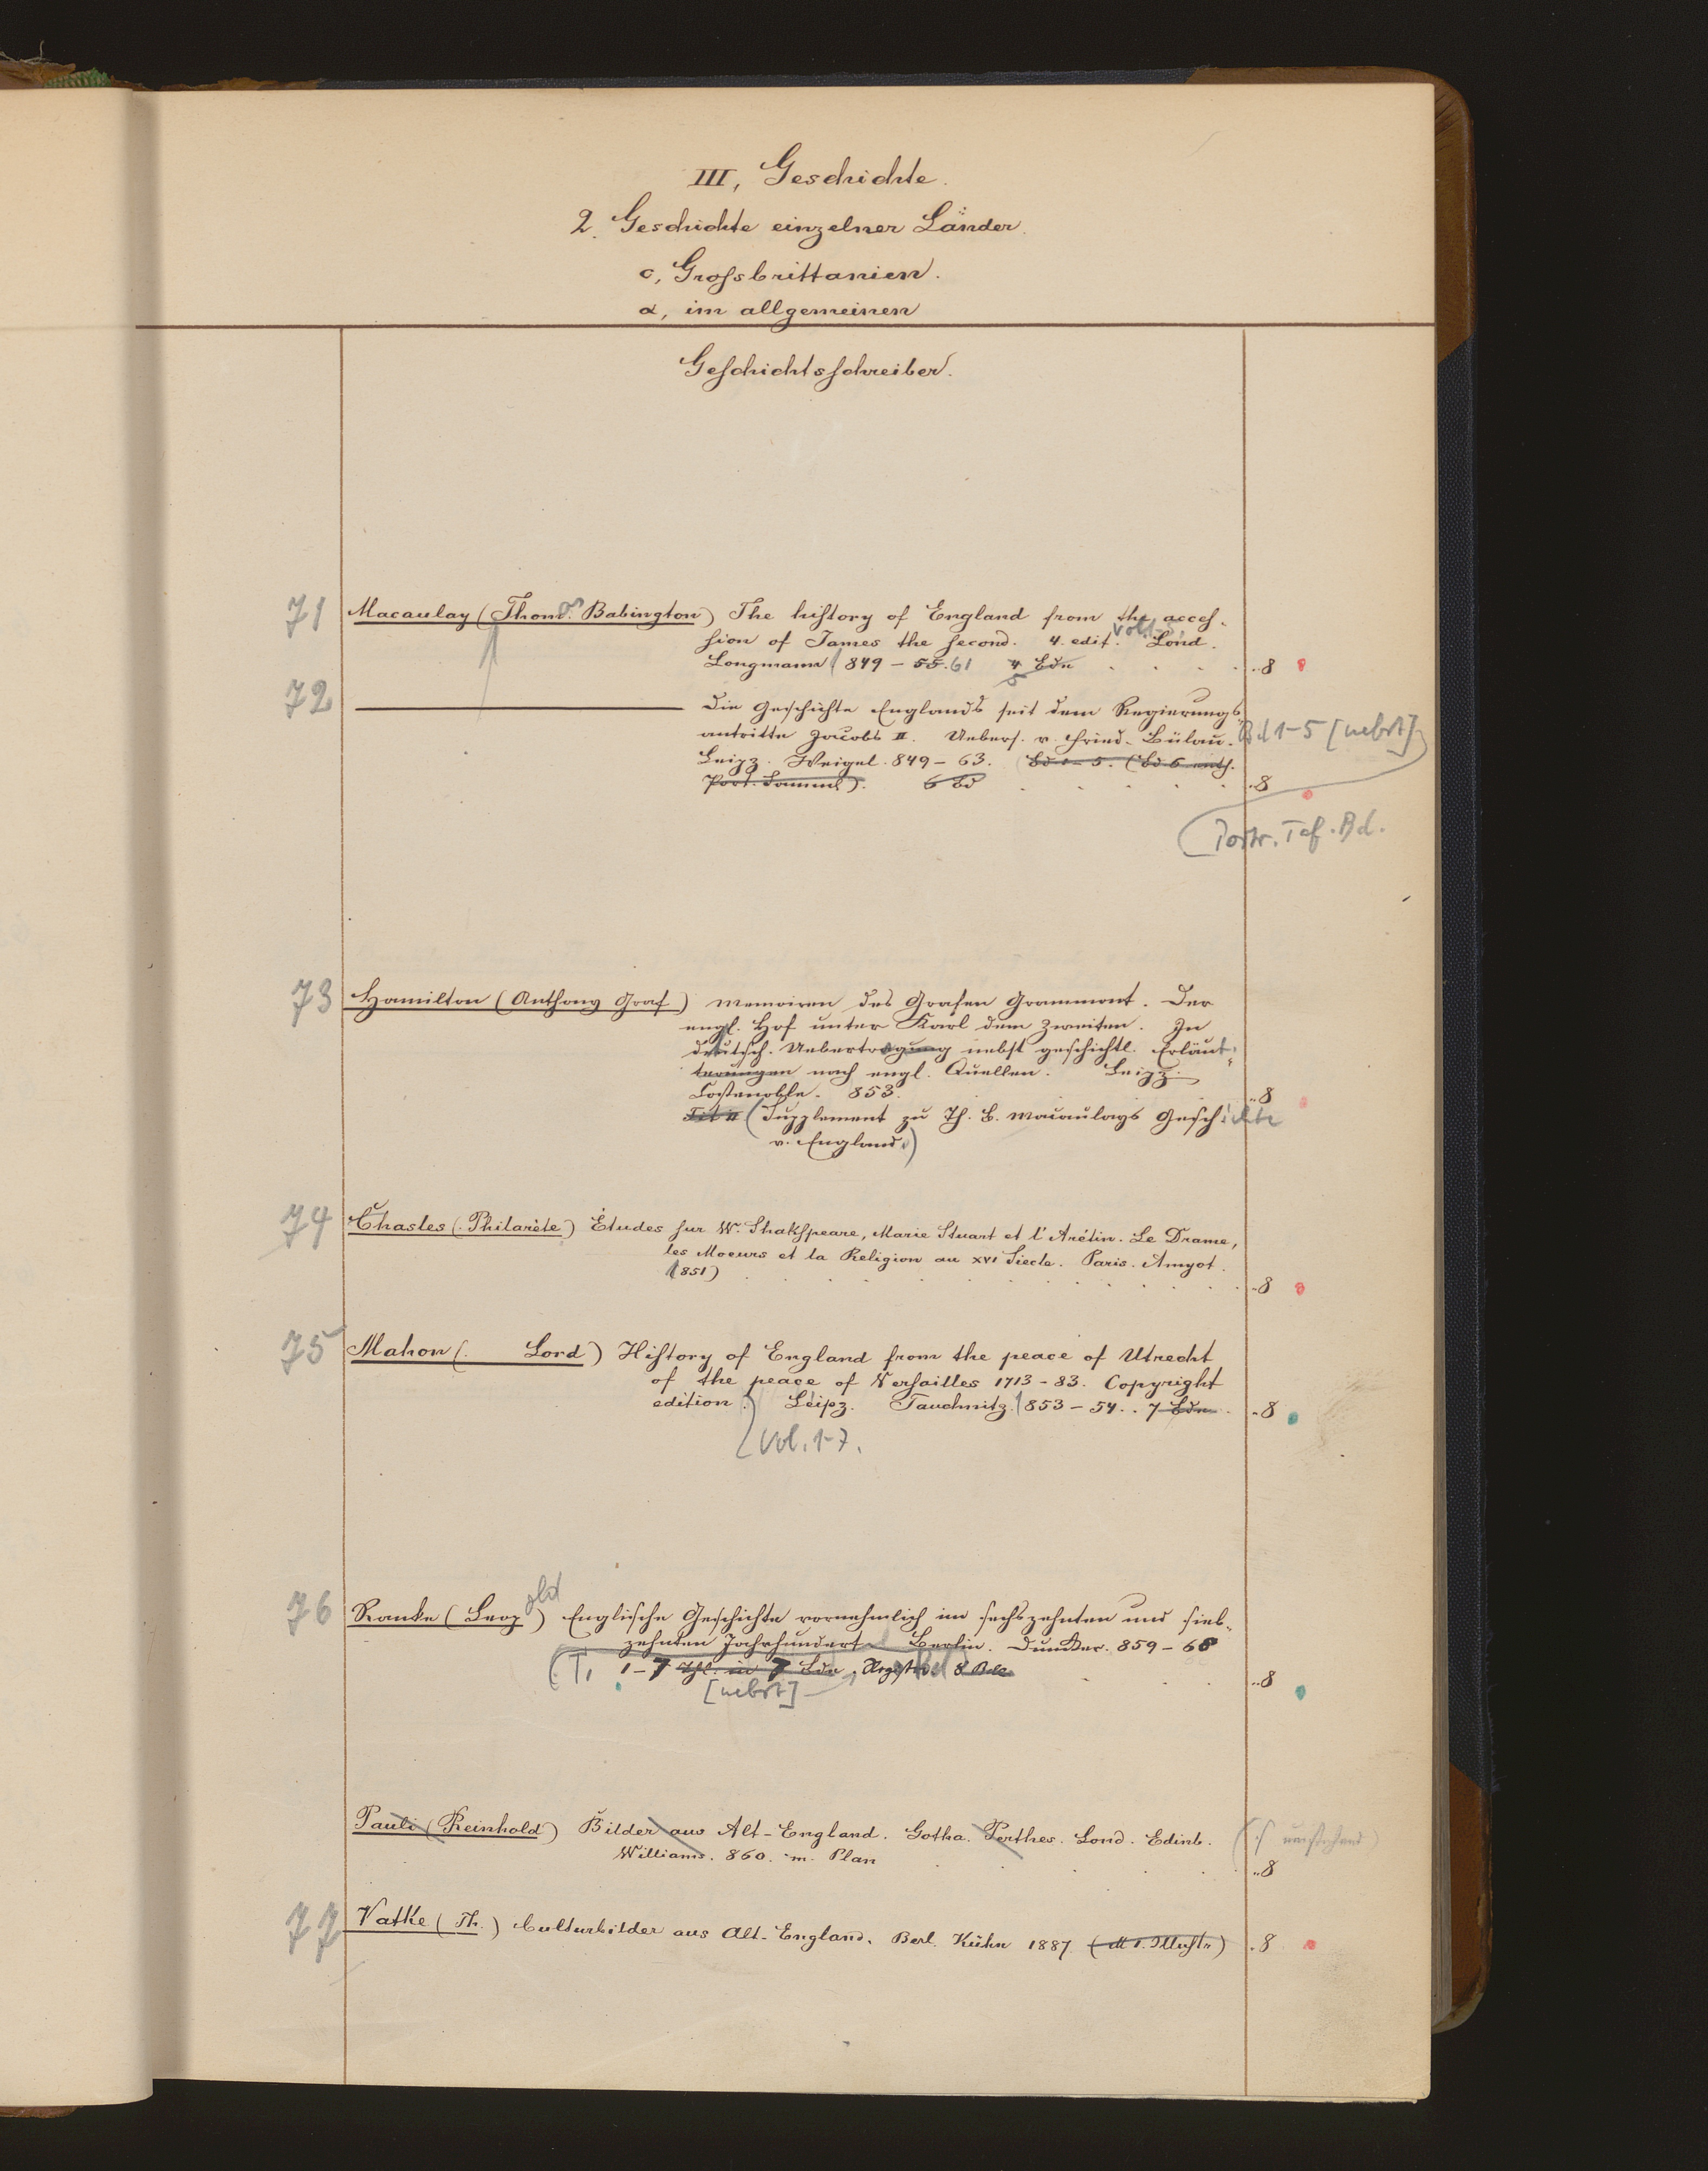 III, Geschichte.
2. Geschichte einzelner Länder.
c, Grosſbrittanien.
α, im allgemeinen
Geſchichtsſchreiber.
71 Macaulay (Thom. Babington) The hiſtory of England from the acceſ-
ſion of James the ſecond. 4. edit. Vol. 1-5. Lond.
Longmann (849 – 55. 61 4 Bde 5 . . . . ..8
72 ——— Die Geſchichte Englands ſeit dem Regierungs-
antritte Jacobs II. Ueberſ. v. Fried. Bülau. Bd 1-5 [nebst]
Leipz. Weigel. 849 – 63. (Bd 1 – 5. (Bd 6 enth.
Port. Samml). 6 Bd . . . . . ..8
(Portr. Taf. Bd.
73 Hamilton (Anthony Graf) Memoiren des Grafen Grammont. Der
engl. Hof unter Karl dem Zweiten. In
deutſch. Uebertragung nebſt geſchichtl. Erläut-
terungen nach engl. Quellen. Leipz.
Coſtenoble. 853. ..8
Tit II (Supplement zu Th. B. Macaulays Geſchichte
v. England.)
74 Chasles (Philarète) Études ſur W. Shakſpeare, Marie Stuart et l'Arétin. Le Drame,
les Moeurs et la Religion au XVI Siecle. Paris. Amyot.
(851) . . . . . . . . . . ..8
75 Mahon (. Lord) Hiſtory of England from the peace of Utrecht
of the peace of Verſailles 1713 – 83. Copyright
edition.) Leipz. Tauchnitz. (853 – 54. . 7 Bde. ..8
Vol. 1-7.
76 Ranke (Leopold) Engliſche Geſchichte vornehmlich im ſechszehnten und ſieb-
zehnten Jahrhundert. Berlin. Duncker. 859 – 68
(T. 1 – 7 Thl. in 7 Bde. Regiſter Bd 8 Bde. . . ..8
[nebst]
Pauli (Reinhold) Bilder aus Alt-England. Gotha. Perthes. Lond. Edinb. (ſ. umſtehend)
Williams. 860. m. Plan . . . . . ..8
77 Vatke (Th.) Culturbilder aus Alt-England. Berl. Kühn 1887 (M. Illuſtr) .8